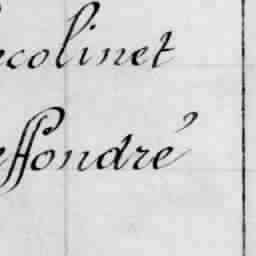 ecolinet
effondré